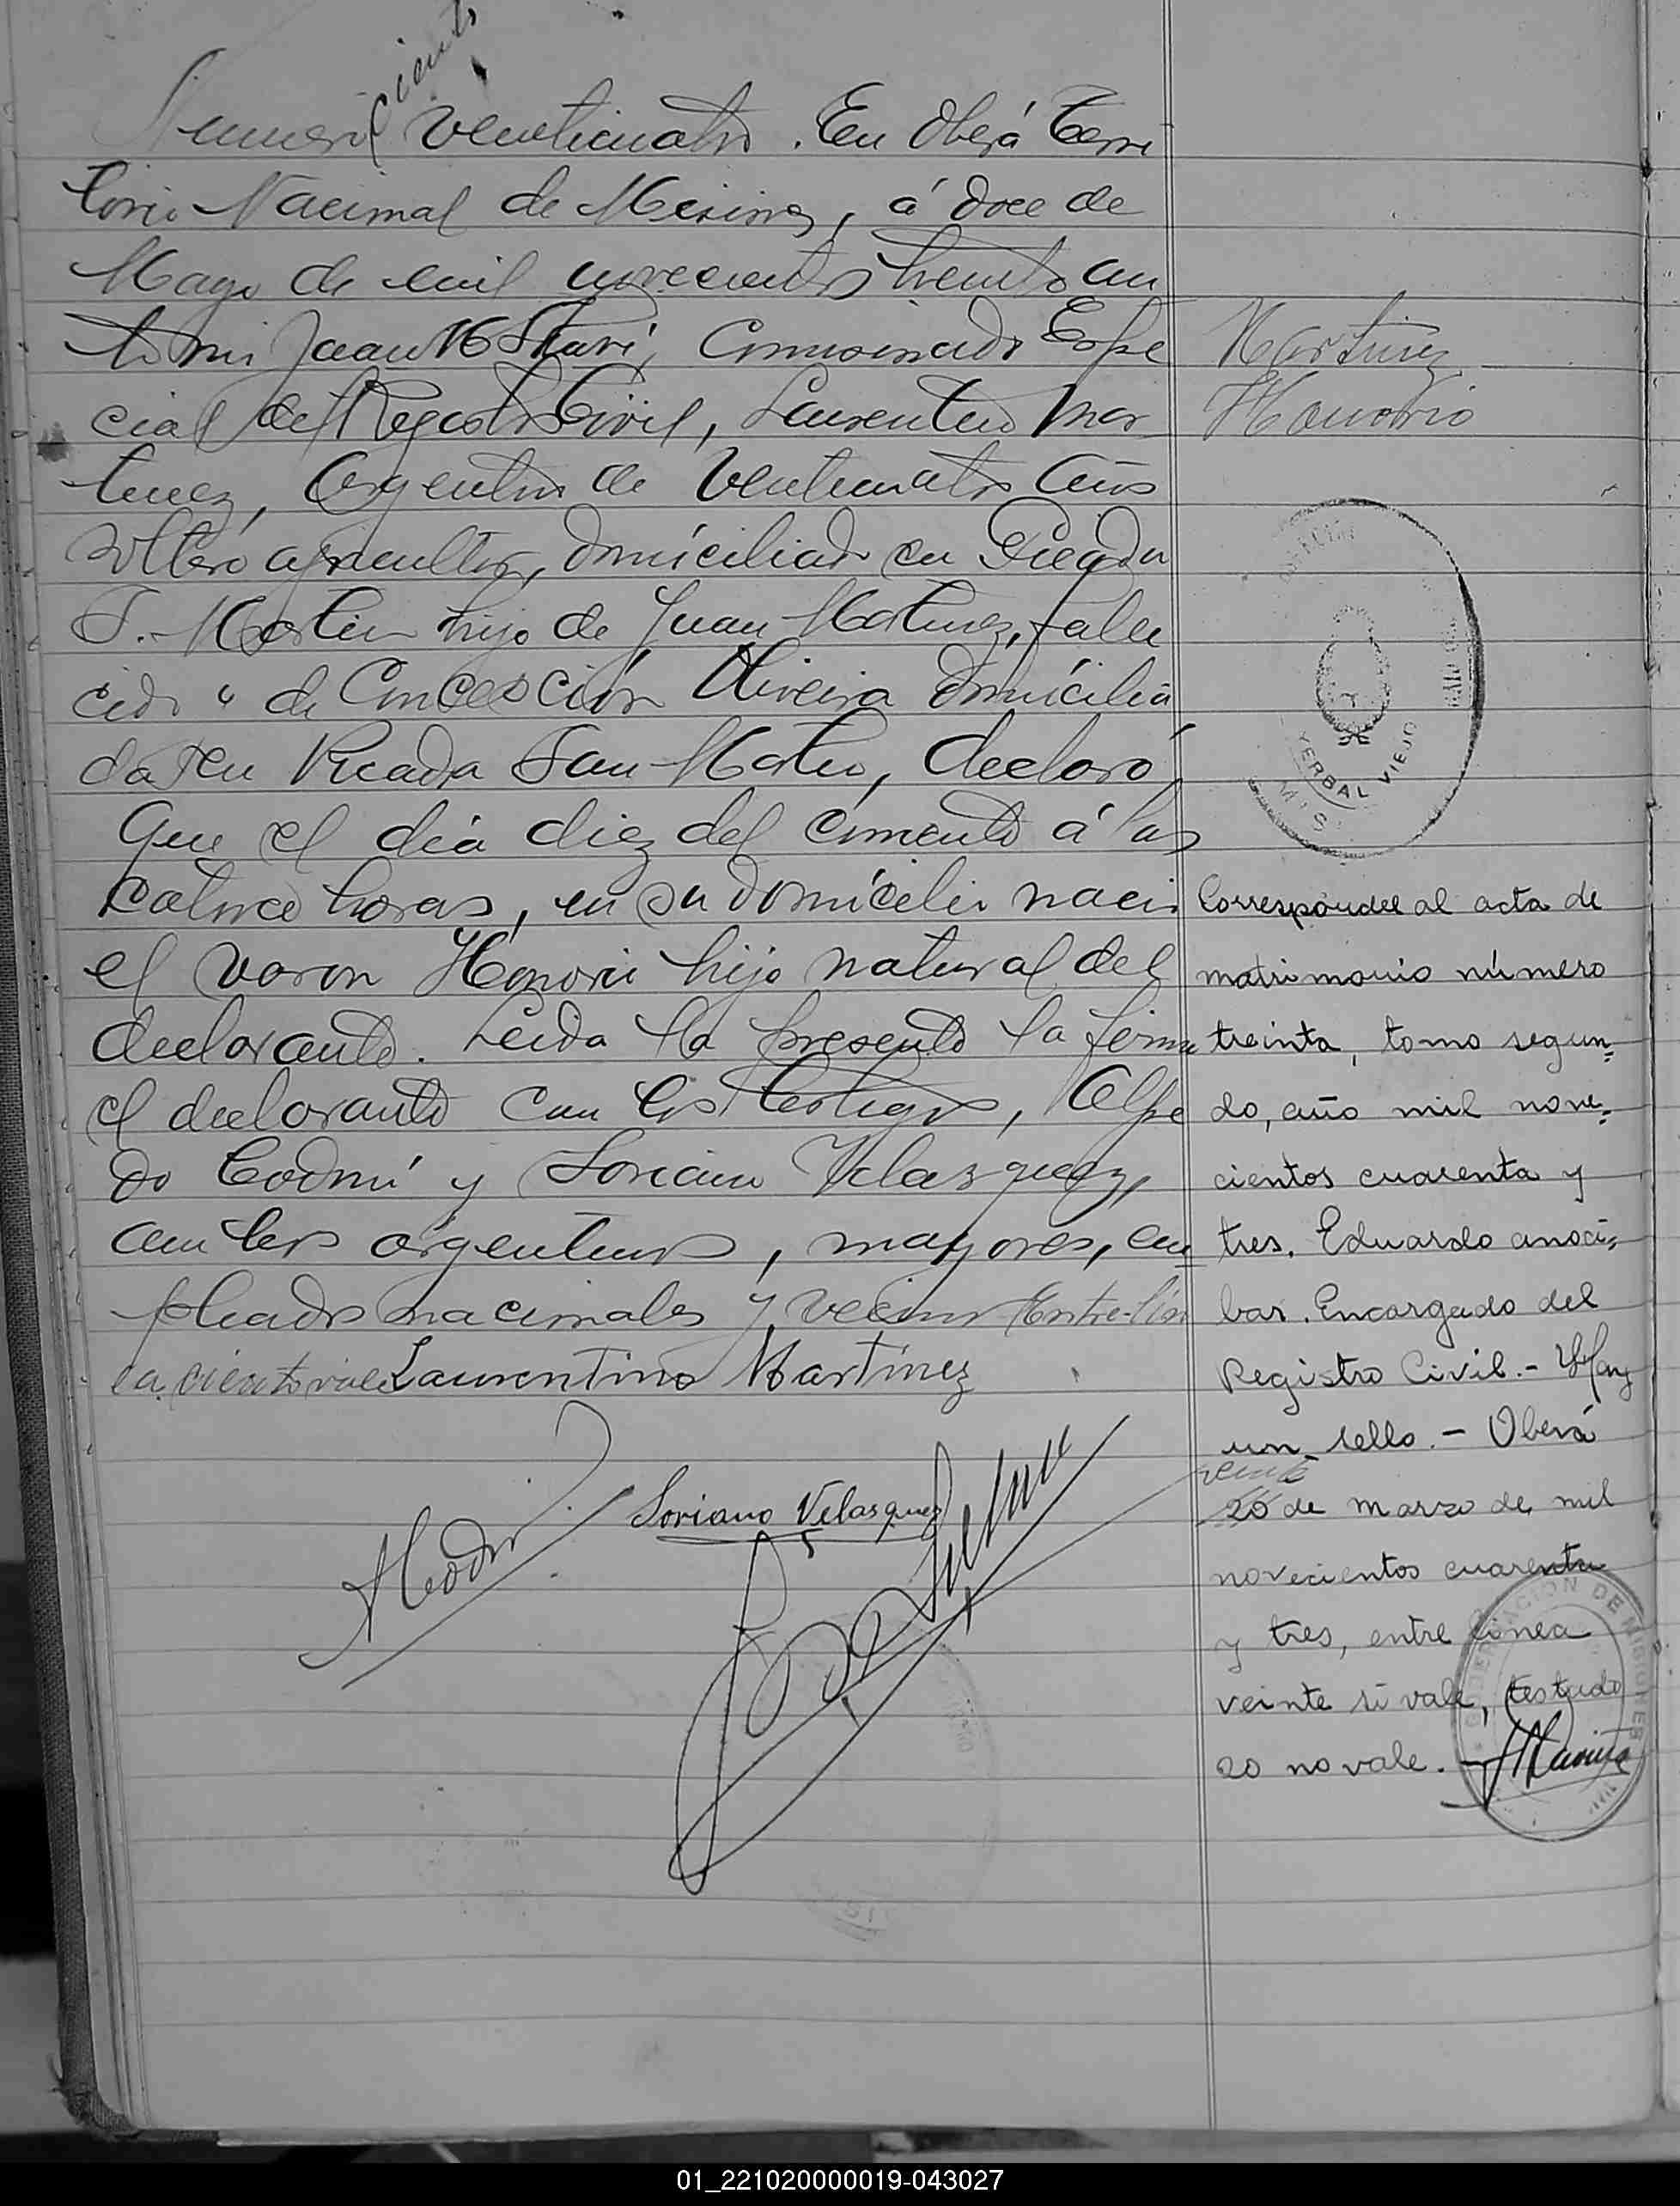 ciento
Numero veinticuatro. En Oberá Terri
torio Nacional de Misiones, á doce de
Mayo de mil novecientos treinta an
te mi Juan Comisionado Espe
cial del Registro Civil, Laurentino Mar
tinez, Argentino de veinticuatro años
soltero agricultor, domiciliado en Picada
S. Martin hijo de Juan Martinez, falle
cido y de Concepción Oliveira domicilia
da en Picada San Martin, declaró
Que el día diez del corriente á las
catorce horas, en su domicilio nació
el varon Honorio hijo natural del
declarante. Leida la presente la firma
el declarante con los testigos, Alfre
do Codni y Soriano Velasquez,
ambos argentinos, mayores, em
pleados nacionales y vecinos Entre-lín
ea ciento vale Laurentino Martínez
Soriano Velasquez
Martinez
Honorio
YERBAL VIEJO
MIS
Corresponde al acta de
matrimonio número
treinta, tomo segun-
do, año mil nove-
cientos cuarenta y
tres. Eduardo anoci-
bar. Encargado del
Registro Civil.- Hay
un sello.- Oberá
veinte
20 de marzo de mil
novecientos cuarenta
y tres, entre linea
veinte si vale, testado
20 no vale.-
GOBERNACION DE MISIONES
01_221020000019-043027